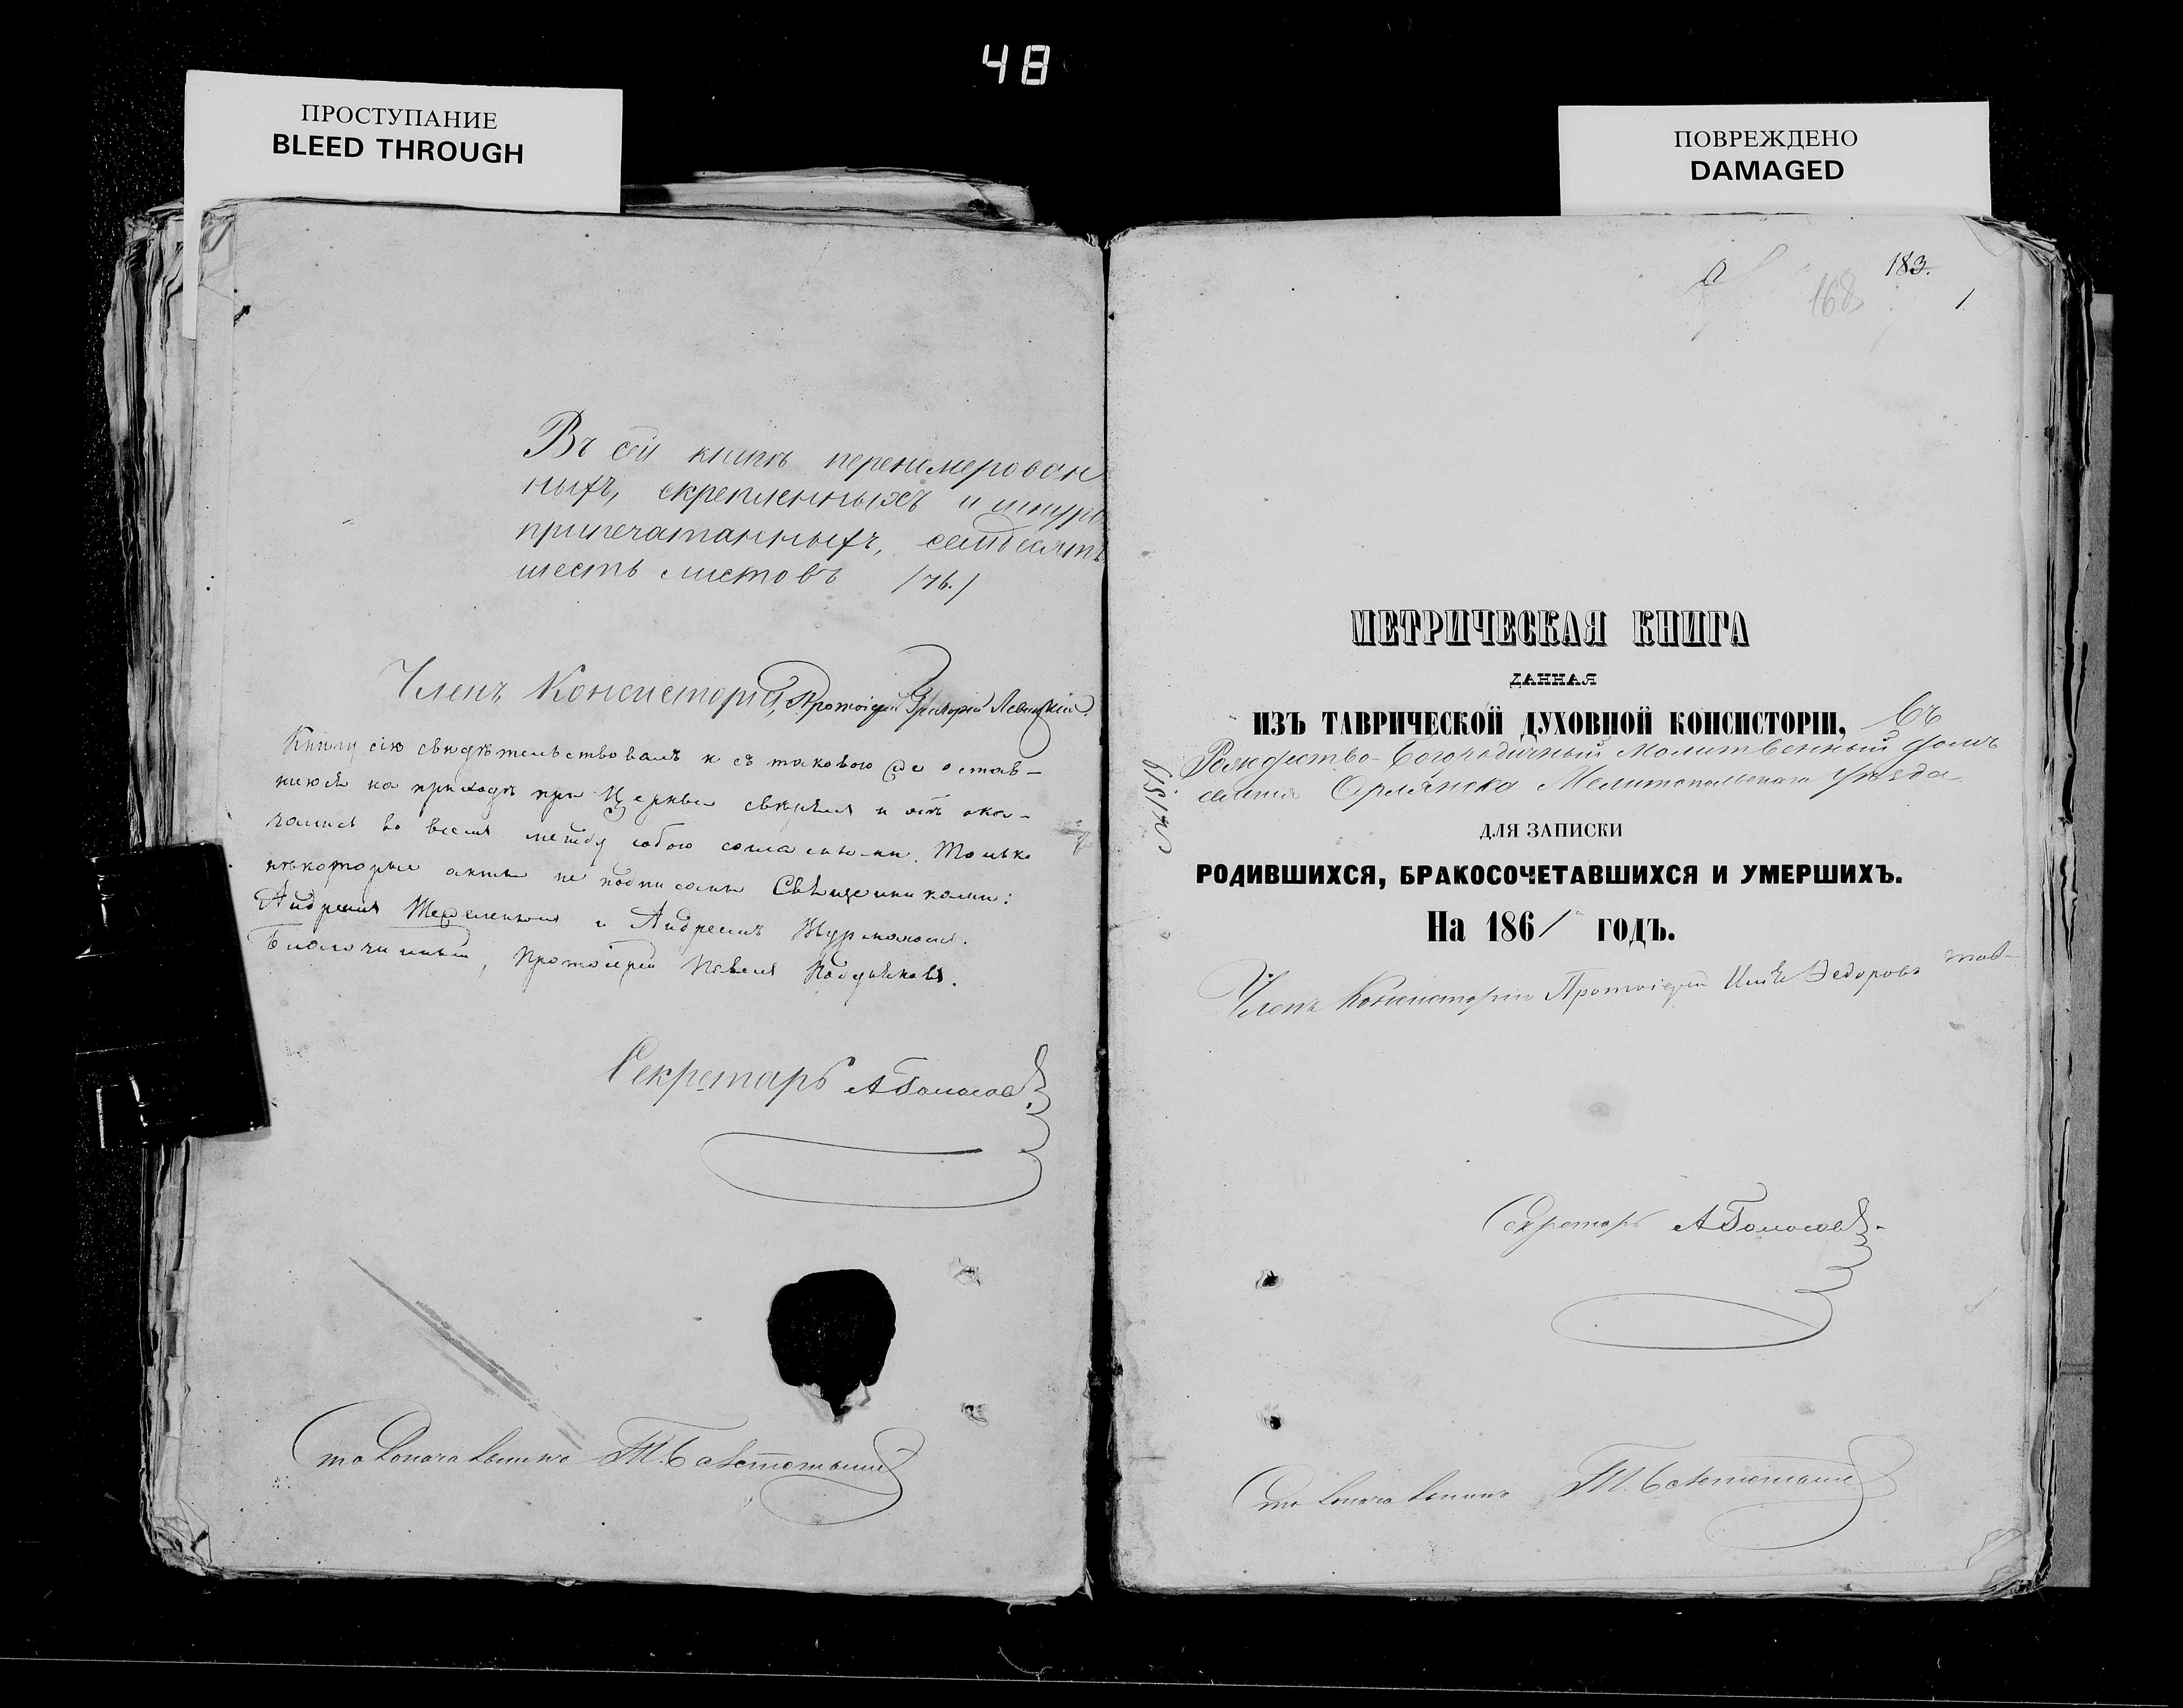 48
ПРОСТУПАНИЕ
BLEED THROUGH
ПОВРЕЖДЕНО
DAMAGED
Въ сей книгѣ перенумерован
ныхъ, скрепленныхъ и шнур
припечатанныхъ, семдесятъ
шесть листовъ /76./
Членъ Консисторіи, Протоіерей Григорій Левицкій.
Книгу сію свидѣтельствовалъ и съ таковою же остав-
шеюся на приходѣ при Церкви свѣрялъ и онѣ ока-
зались во всемъ между собою согласными. Только
нѣкоторые акты не подписаны Священниками:
Андреемъ и Андреемъ
Благочинный, Протоіерей Павелъ
Секретарь А Голосовъ
Столоначальникъ
183.
168
1
МЕТРИЧЕСКАЯ КНИГА
ДАННАЯ
ИЗЪ ТАВРИЧЕСКОЙ ДУХОВНОЙ КОНСИСТОРІИ, Въ
Рождество-Богородичный Молитвенный домъ
селенія Орлянска Мелитопольскаго уѣзда
ДЛЯ ЗАПИСКИ
РОДИВШИХСЯ, БРАКОСОЧЕТАВШИХСЯ И УМЕРШИХЪ.
На 1861 ГОДЪ.
Членъ Консисторіи Протоіерей
Секретарь А Голосовъ
Столоначальникъ